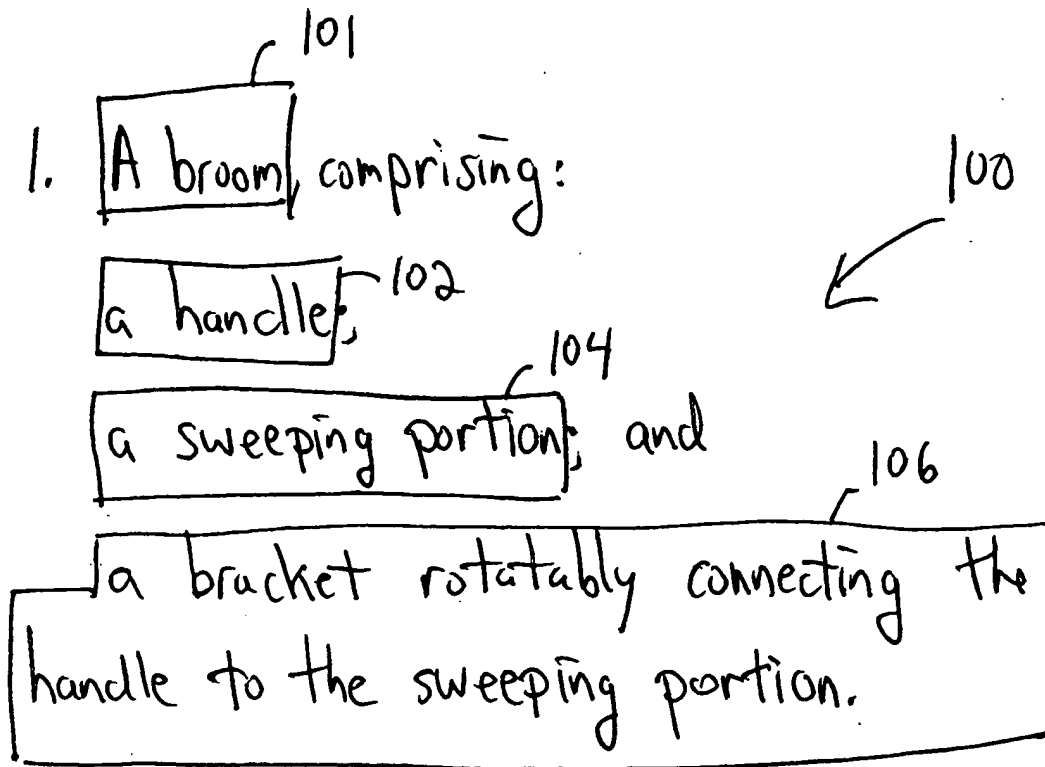 101
1. A broom, comprising:
100
a handle; 102
104
a sweeping portion; and
106
a bracket rotatably connecting the
handle to the sweeping portion.